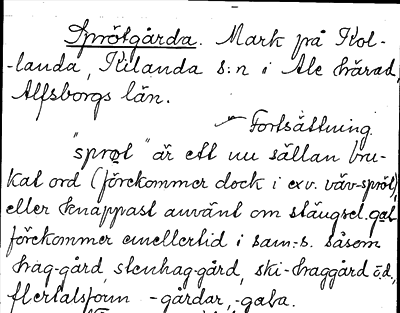 Sprötgårda. Mark på Kol-
-landa, Kilanda s:n i Ale härad,
Älfsborgs län.
Fortsättning.
"sprøt" är ett nu sällan bru-
kat ord (förekommer dock i exv. väv-spröt),
eller knappast använt om stängsel. gał
förekommer emellertid i sam.-s. såsom
hag-gård, stenhag-gård, ski-haggård o.d.,
flertalsform -gårdar, -gała.